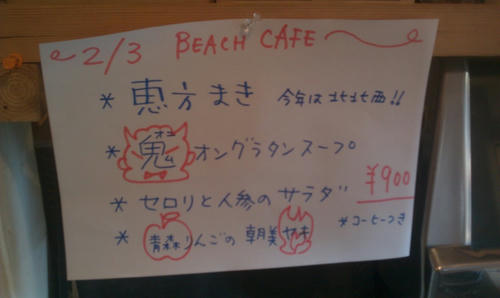 2/3 BEACH CAFE
* 恵方まき 今年は北北西!!
* 鬼オコムオングラタンスープ
* セロリと人参のサラダ ¥900
* 青森りんごの朝美ヤキ *コーヒーつき